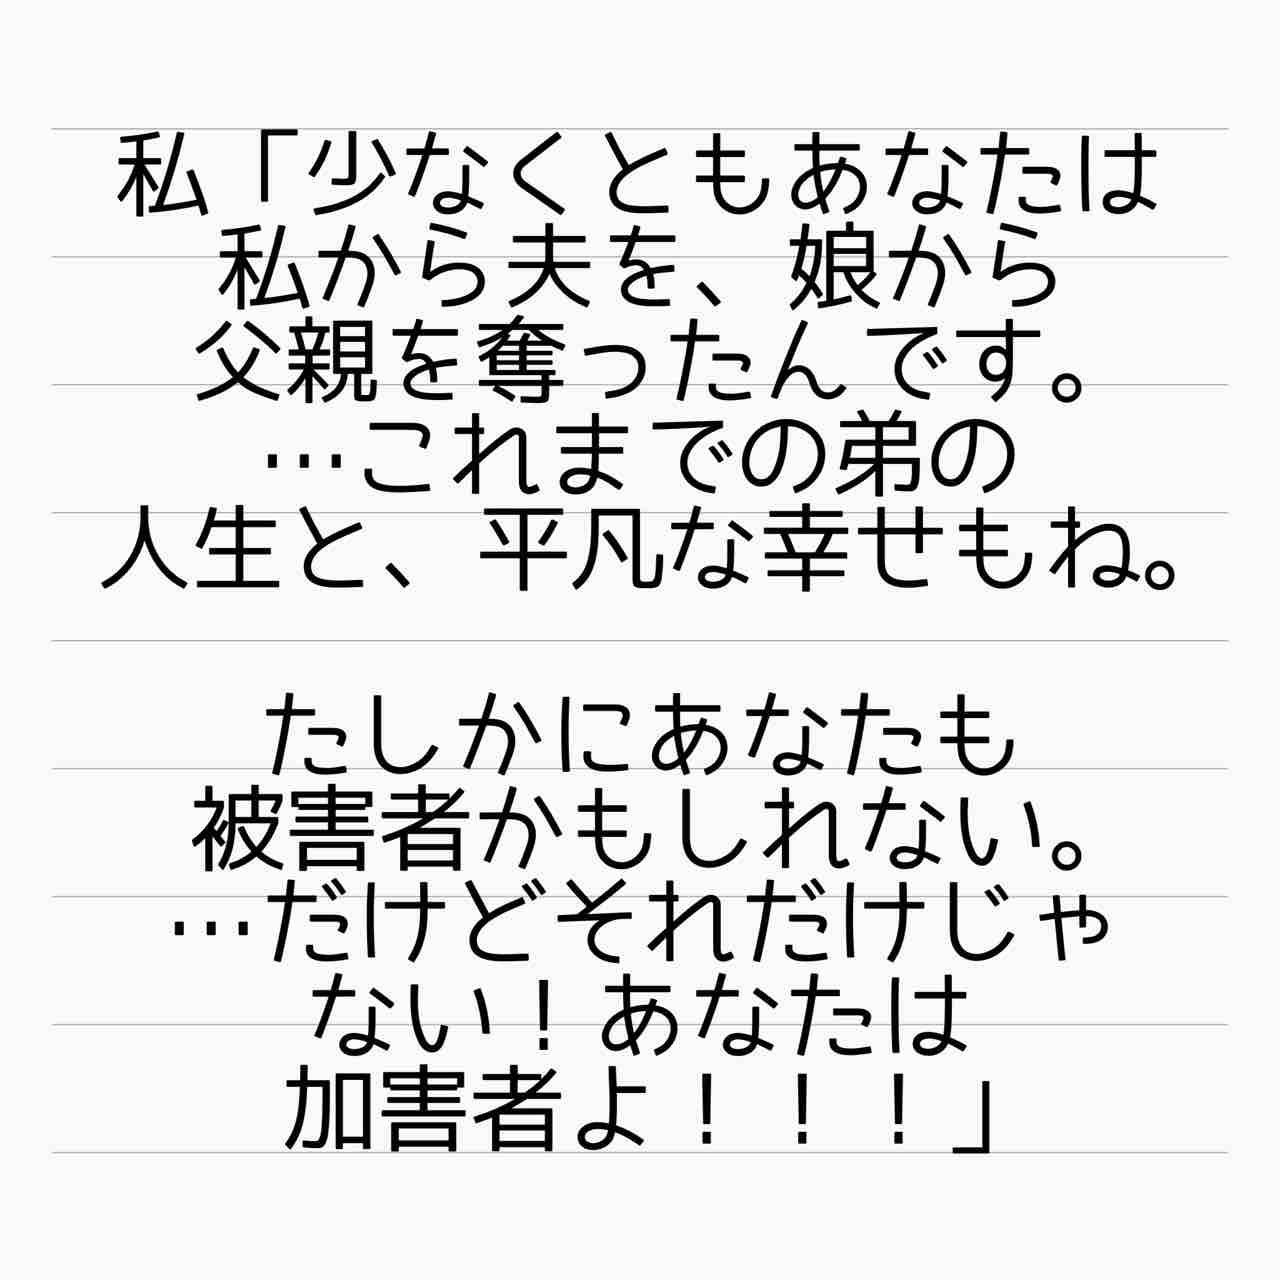 私「少なくともあなたは
私から夫を、娘から
父親を奪ったんです。
…これまでの弟の
人生と、平凡な幸せもね。
たしかにあなたも
被害者かもしれない。
…だけどそれだけじゃ
ない！あなたは
加害者よ！！！」